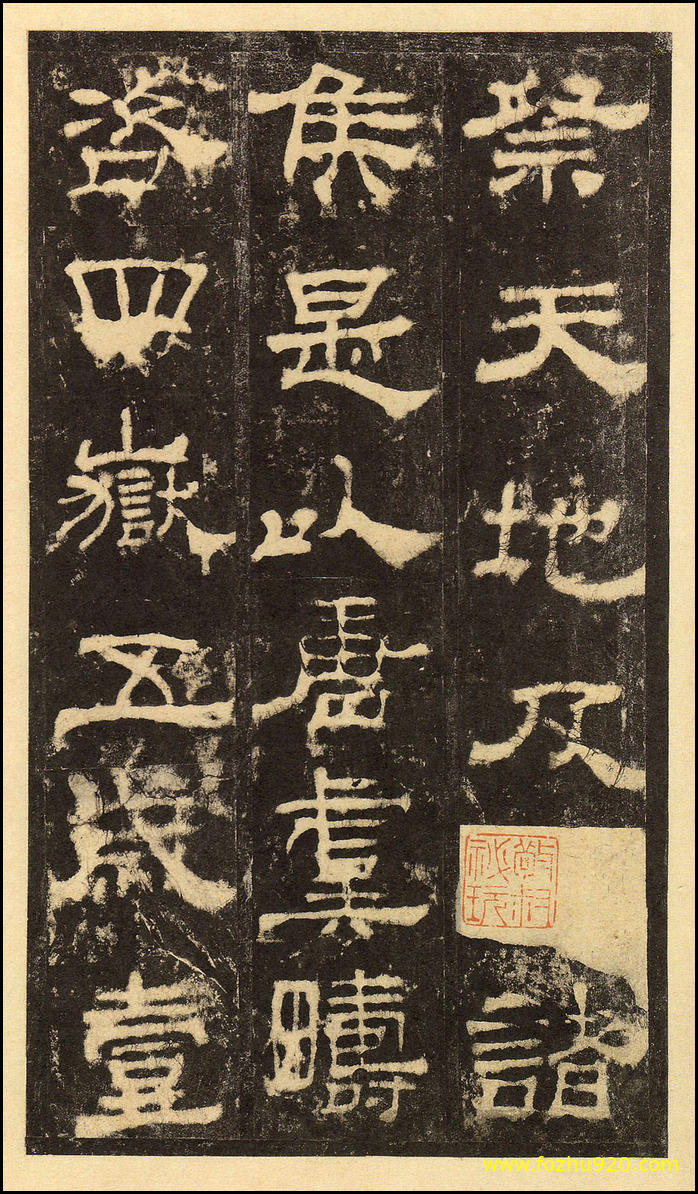 祭天地及諸
侯是以唐虞疇
咨四嶽五歲壹
www.fozhu920.com